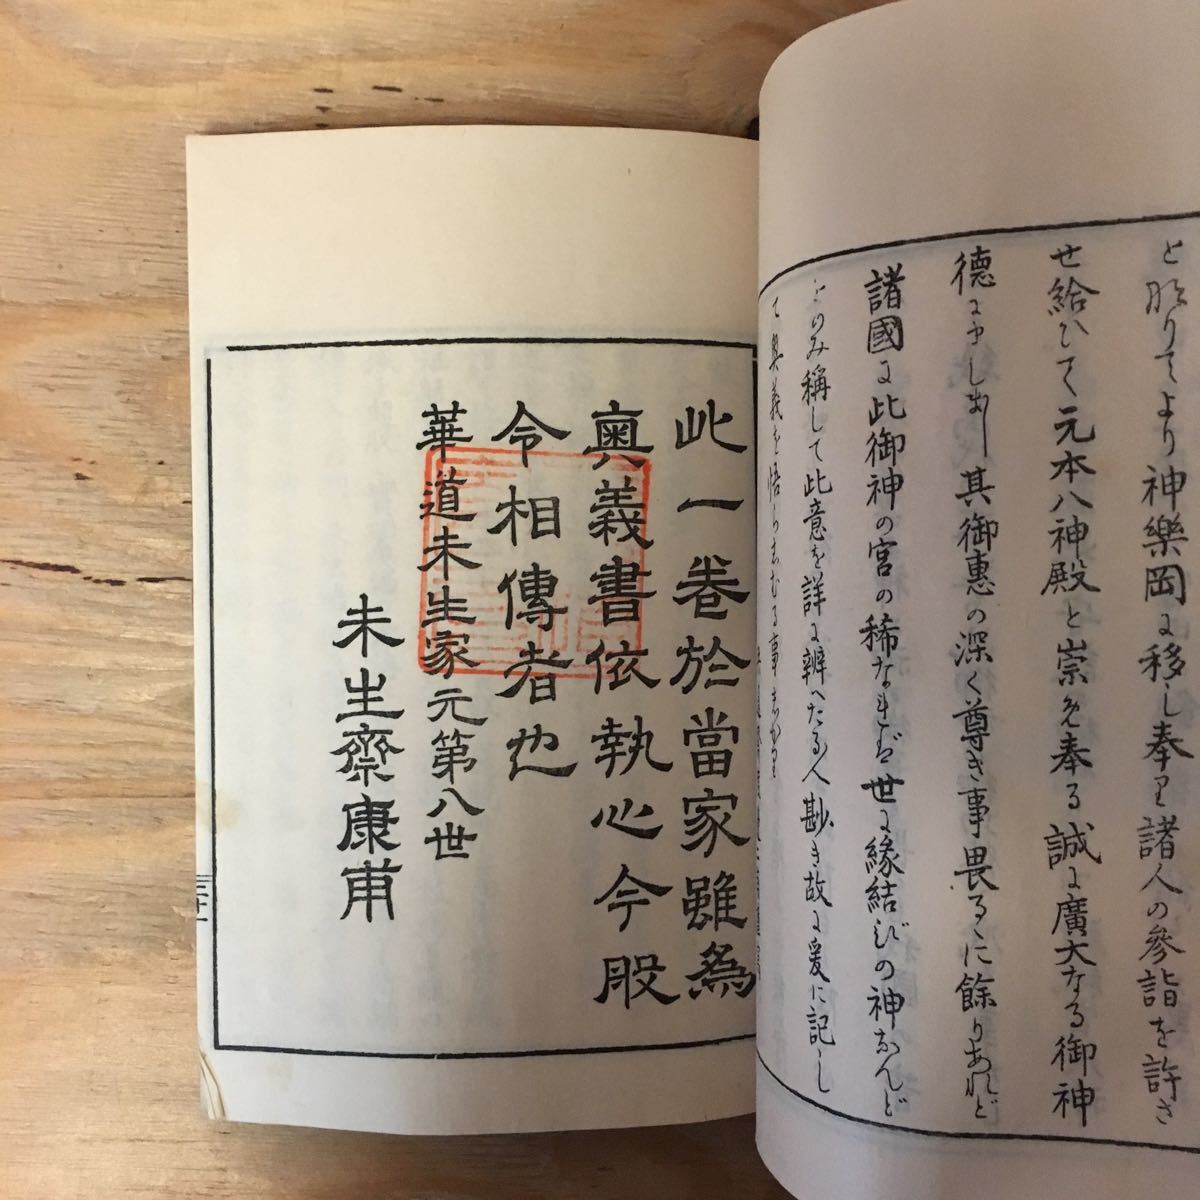 と成りてより神樂岡に移し奉り諸人の參詣を許さ
せ給ひて元本八神殿と崇め奉る誠に廣大なる御神
德にましまし其御惠の深く尊き事畏るゝに餘りあれど
諸國に此御神の宮の稀なれば世に緣結びの神なんど
とのみ稱して此意を詳に辨へたる人尠き故に爰に記し
て奧義を悟らしむる事しかり
此一卷於當家雖為
奧義書依執心今般
令相傳者也
華道未生家元第八世
未生齋康甫
三十一